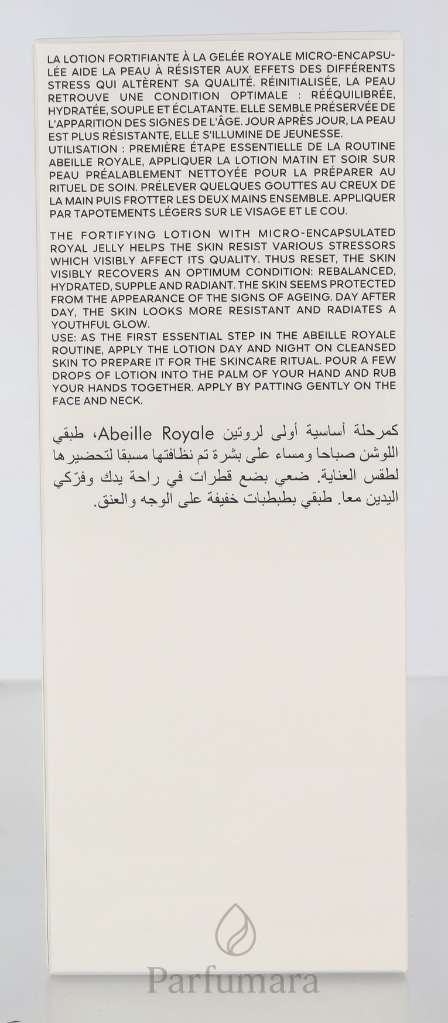 LA LOTION FORTIFIANTE À LA GELÉE ROYALE MICRO-ENCAPSU-
LÉE AIDE LA PEAU À RÉSISTER AUX EFFETS DES DIFFÉRENTS
STRESS QUI ALTÈRENT SA QUALITÉ. RÉINITIALISÉE, LA PEAU
RETROUVE UNE CONDITION OPTIMALE : RÉÉQUILIBRÉE,
HYDRATÉE, SOUPLE ET ÉCLATANTE. ELLE SEMBLE PRÉSERVÉE DE
L'APPARITION DES SIGNES DE L'ÂGE. JOUR APRÈS JOUR, LA PEAU
EST PLUS RÉSISTANTE, ELLE S'ILLUMINE DE JEUNESSE.
UTILISATION : PREMIÈRE ÉTAPE ESSENTIELLE DE LA ROUTINE
ABEILLE ROYALE, APPLIQUER LA LOTION MATIN ET SOIR SUR
PEAU PRÉALABLEMENT NETTOYÉE POUR LA PRÉPARER AU
RITUEL DE SOIN. PRÉLEVER QUELQUES GOUTTES AU CREUX DE
LA MAIN PUIS FROTTER LES DEUX MAINS ENSEMBLE. APPLIQUER
PAR TAPOTEMENTS LÉGERS SUR LE VISAGE ET LE COU.
THE FORTIFYING LOTION WITH MICRO-ENCAPSULATED
ROYAL JELLY HELPS THE SKIN RESIST VARIOUS STRESSORS
WHICH VISIBLY AFFECT ITS QUALITY. THUS RESET, THE SKIN
VISIBLY RECOVERS AN OPTIMUM CONDITION: REBALANCED,
HYDRATED, SUPPLE AND RADIANT. THE SKIN SEEMS PROTECTED
FROM THE APPEARANCE OF THE SIGNS OF AGEING. DAY AFTER
DAY, THE SKIN LOOKS MORE RESISTANT AND RADIATES A
YOUTHFUL GLOW.
USE: AS THE FIRST ESSENTIAL STEP IN THE ABEILLE ROYALE
ROUTINE, APPLY THE LOTION DAY AND NIGHT ON CLEANSED
SKIN TO PREPARE IT FOR THE SKINCARE RITUAL. POUR A FEW
DROPS OF LOTION INTO THE PALM OF YOUR HAND AND RUB
YOUR HANDS TOGETHER. APPLY BY PATTING GENTLY ON THE
FACE AND NECK.
كمرحلة أساسية أولى لروتين Abeille Royale، طبقي
اللوشن صباحا ومساء على بشرة تم نظافتها مسبقا لتحضيرها
لطقس العناية. ضعي بضع قطرات في راحة يدك وفرّكي
اليدين معا. طبقي بطبطبات خفيفة على الوجه والعنق.
Parfumara